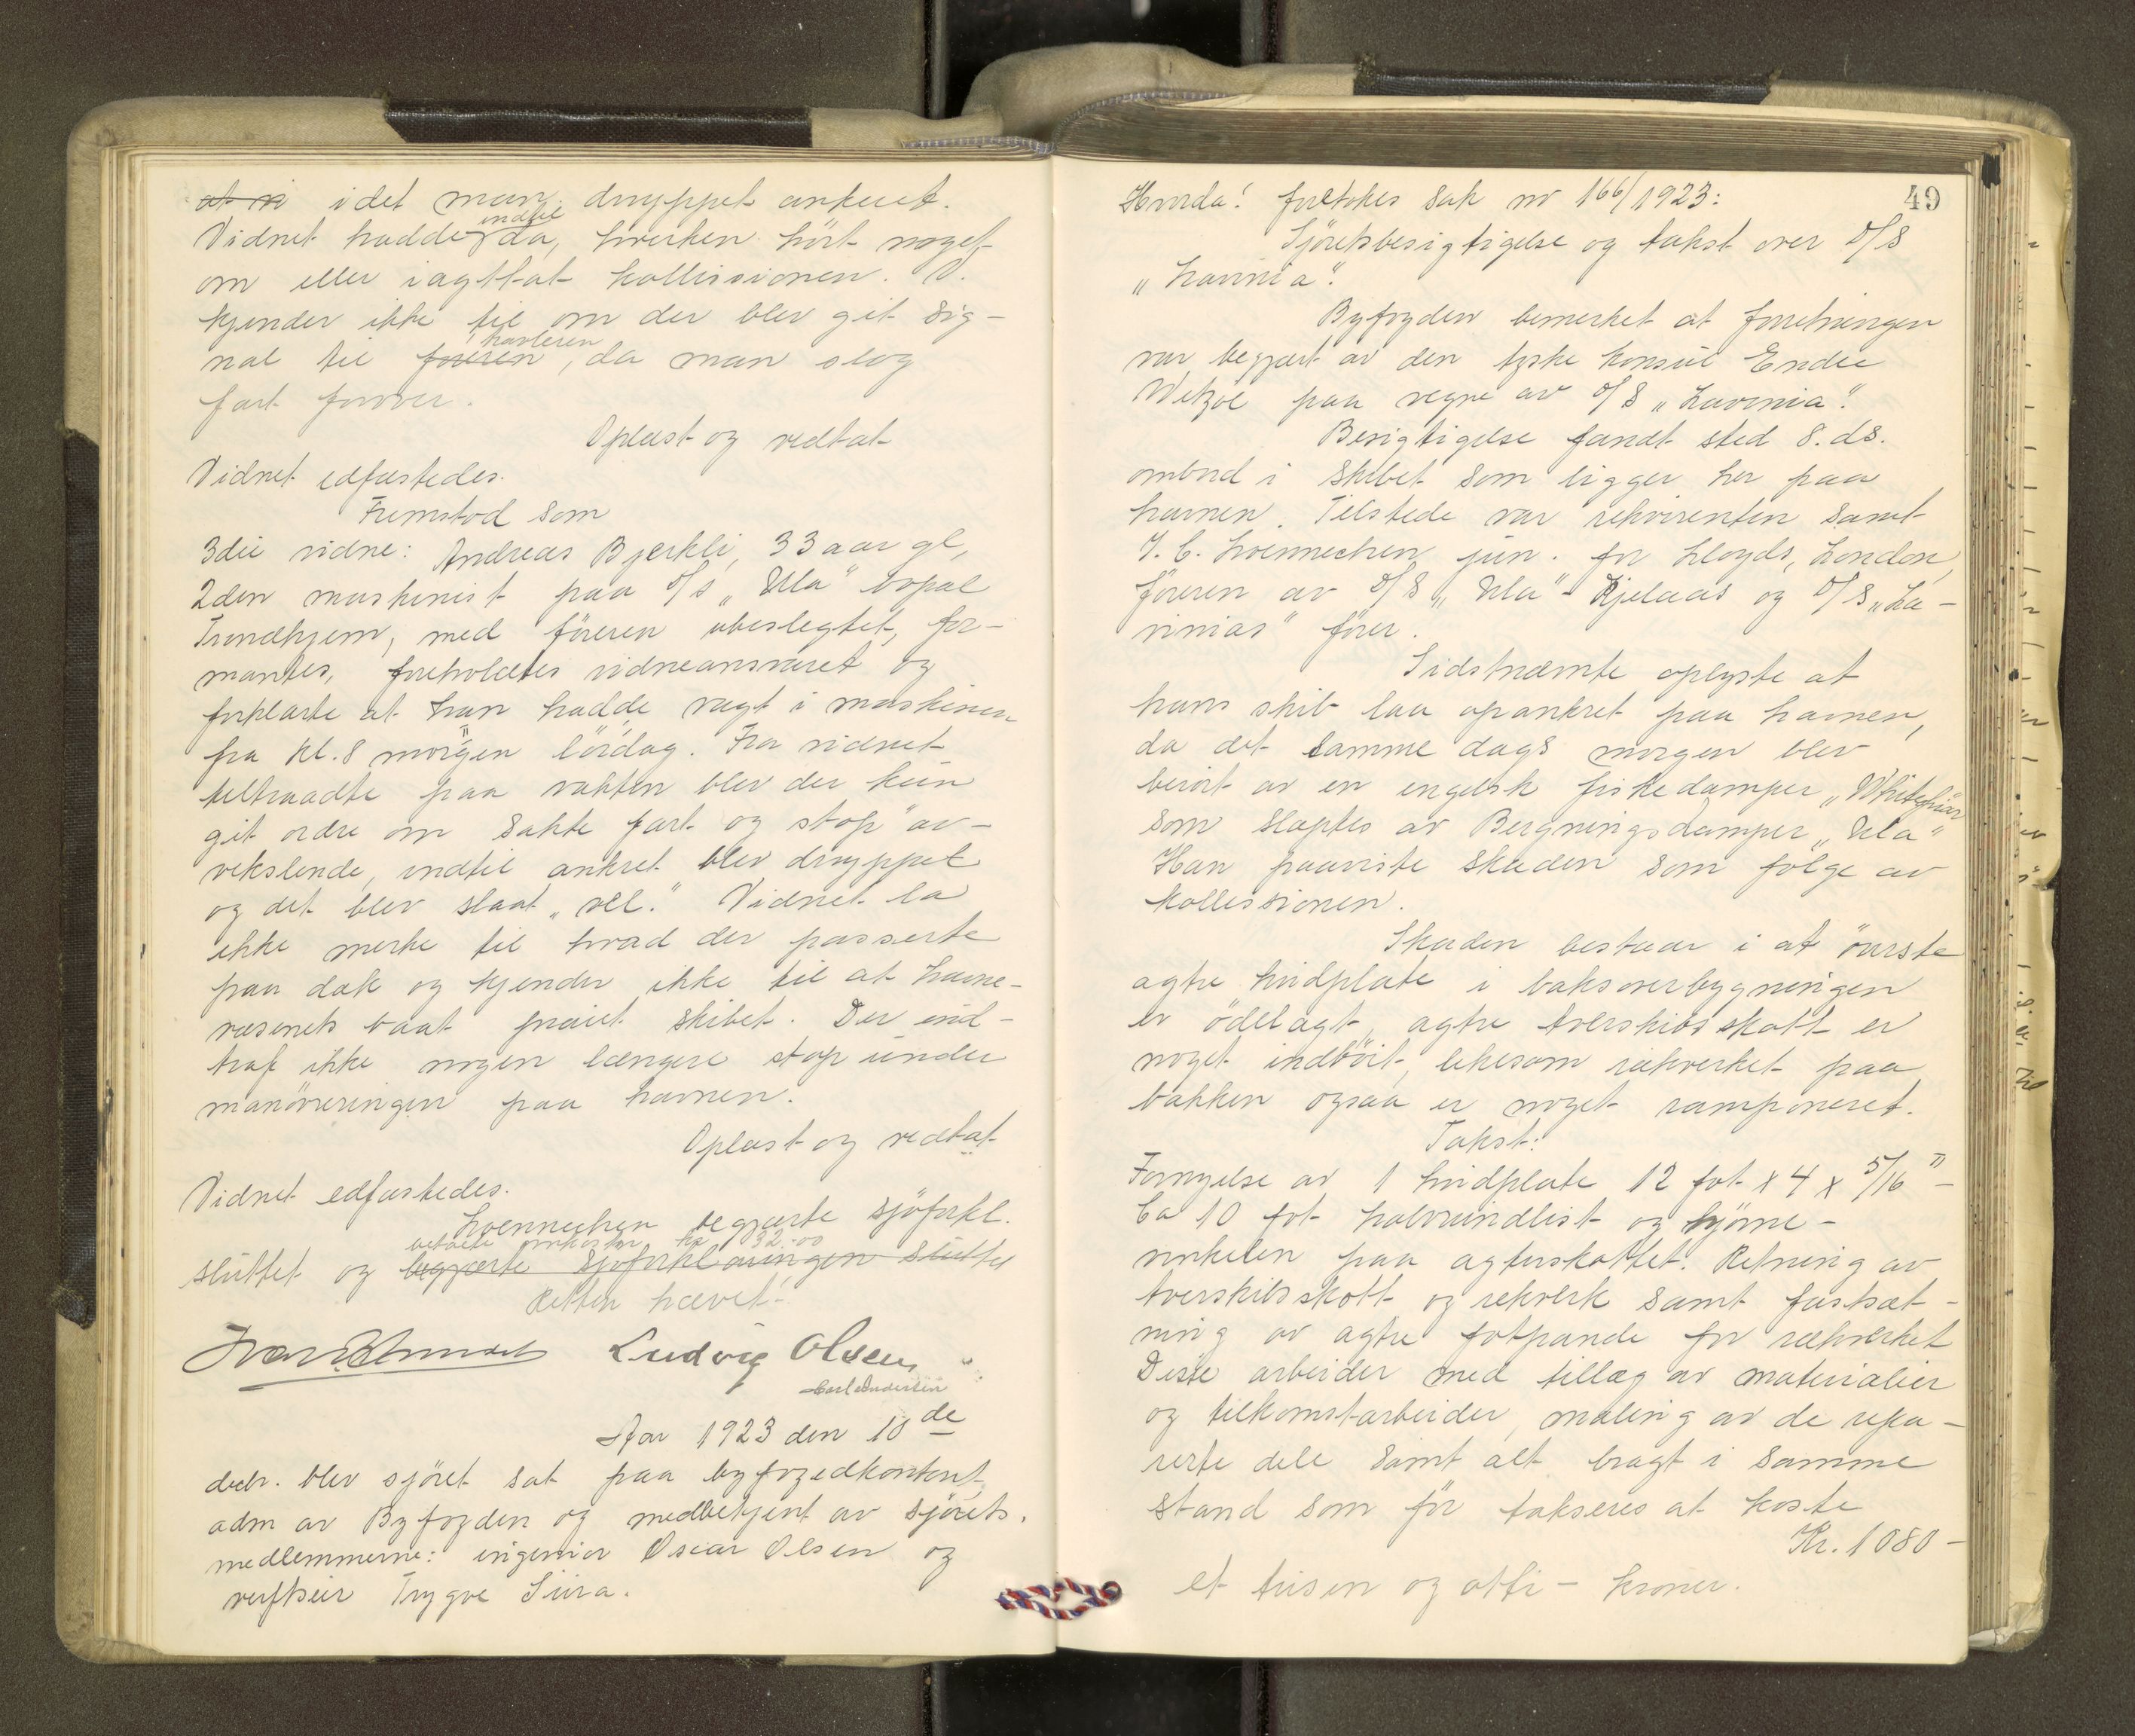 at vi idet man druppet ankeret.
Vidnet hadde indtil da, hverken hørt noget
om eller iagttat kollissionen. V.
kjender ikke til om der blev git sig-
nal til føreren travleren, da man slog
fart forover.
Oplæst og vedtat
Vidnet edfæstedes.
Fremstod som
3die vidne: Andreas Bjerkli, 33 aar gl,
2den maskinist paa D/S „Ula" bopæl
Trondhjem, med føreren ubeslegtet, for-
mantes, foreholdtes vidneansvaret og
forklarte at han hadde vagt i maskinen
fra kl. 8 morgen lördag. Fra vidnet
tiltraadte paa vakten blev der kun
git ordre om sakte fart og stop av-
vekslende, indtil ankret blev druppet
og det blev slaat „vel." Vidnet la
ikke merke til hvad der passerte
paa dæk og kjender ikke til at havne-
væsenets baat praiet skibet. Der ind-
traf ikke nogen længere stop under
manövreringen paa havnen.
Oplæst og vedtat
Vidnet edfæstedes.
Loennechen begjærte sjöforkl.
sluttet og begjærte Sjøforklaringen sluttet
betalte omkostn. kr 32-00
Retten hævet!
Ludvig Olsen
Carl Andersen
Aar 1923 den 10de
decbr. blev sjöret sat paa byfogedkontoret
adm av Byfogden og medbetjent av sjörets.
medlemmerne: ingeniør Oscar Olsen og
verftseier Trygve Siira.
49
Hvorda! foretokes sak nr 166/1923:
Sjöretsbesigtigelse og takst over D/S
„Lavinia".
Byfogden bemerket at forretningen
var begjært av den tyske konsul Endre
Wetzel paa vegne av D/S „Lavinia".
Besigtigelse fandt sted 8. ds.
ombord i skibet som ligger her paa
havnen. Tilstede var rekvirenten samt
J. C. Loennechen jun. for Lloyds, London,
føreren av D/S „Ula" - Kjelaas og D/S „La-
vinias" förer.
Sidstnævnte oplyste at
hans skib laa opankret paa havnen,
da det samme dags morgen blev
berört av en engelsk fiskedamper „Whitefriar"
som slæptes av Bergningsdamper „Ula"
Han paaviste skaden som følge av
kollissionen.
Skaden bestaar i at överste
agtre hudplate i baksoverbygningen
er ödelagt, agtre tverskibsskott er
noget indböit, likesom rækverket paa
bakken ogsaa er noget ramponeret.
Takst:
Fornyelse av 1 hudplate 12 fot x 4 x 5/16" -
Ca 10 fot halvrundlist og hjørne-
vinkelen paa agterskottet. Retning av
tverskibsskott og rekverk samt fastsæt-
ning av agtre fotpande for rækverket
Disse arbeider med tillæg av materialier
og tilkomstarbeider, maling av de repa-
rerte dele samt alt bragt i samme
stand som för takseres at koste
Kr. 1080-
et tusen og otti - kroner.